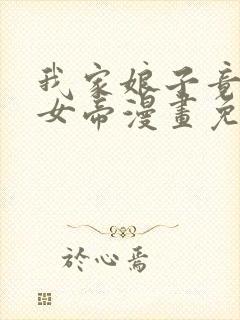 我家娘子竟
女帝漫畫免
於心焉